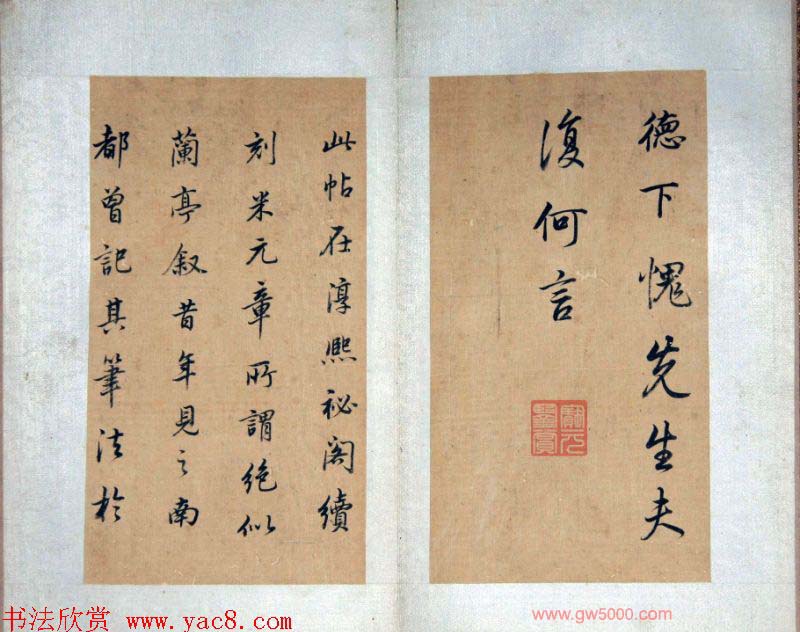 德下愧先生夫
復何言
此帖在淳熙祕閣續
刻米元章所謂絶似
蘭亭敘昔年見之南
都曾記其筆法於
书法欣赏 www.yac8.com
www.gw5000.com